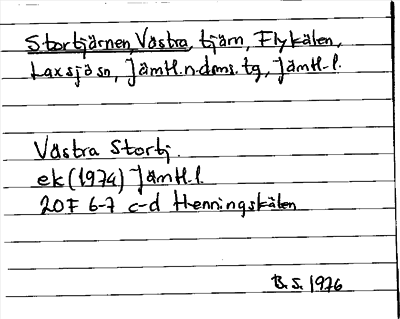 Stortjärnen, Västra, tjärn, Flykälen,
Laxsjö sn, Jämtl.n.doms.tg, Jämtl. l.
Västra Stortj.
ek (1974) Jämtl. l.
20F 6-7 c-d Henningskälen
B.S. 1976